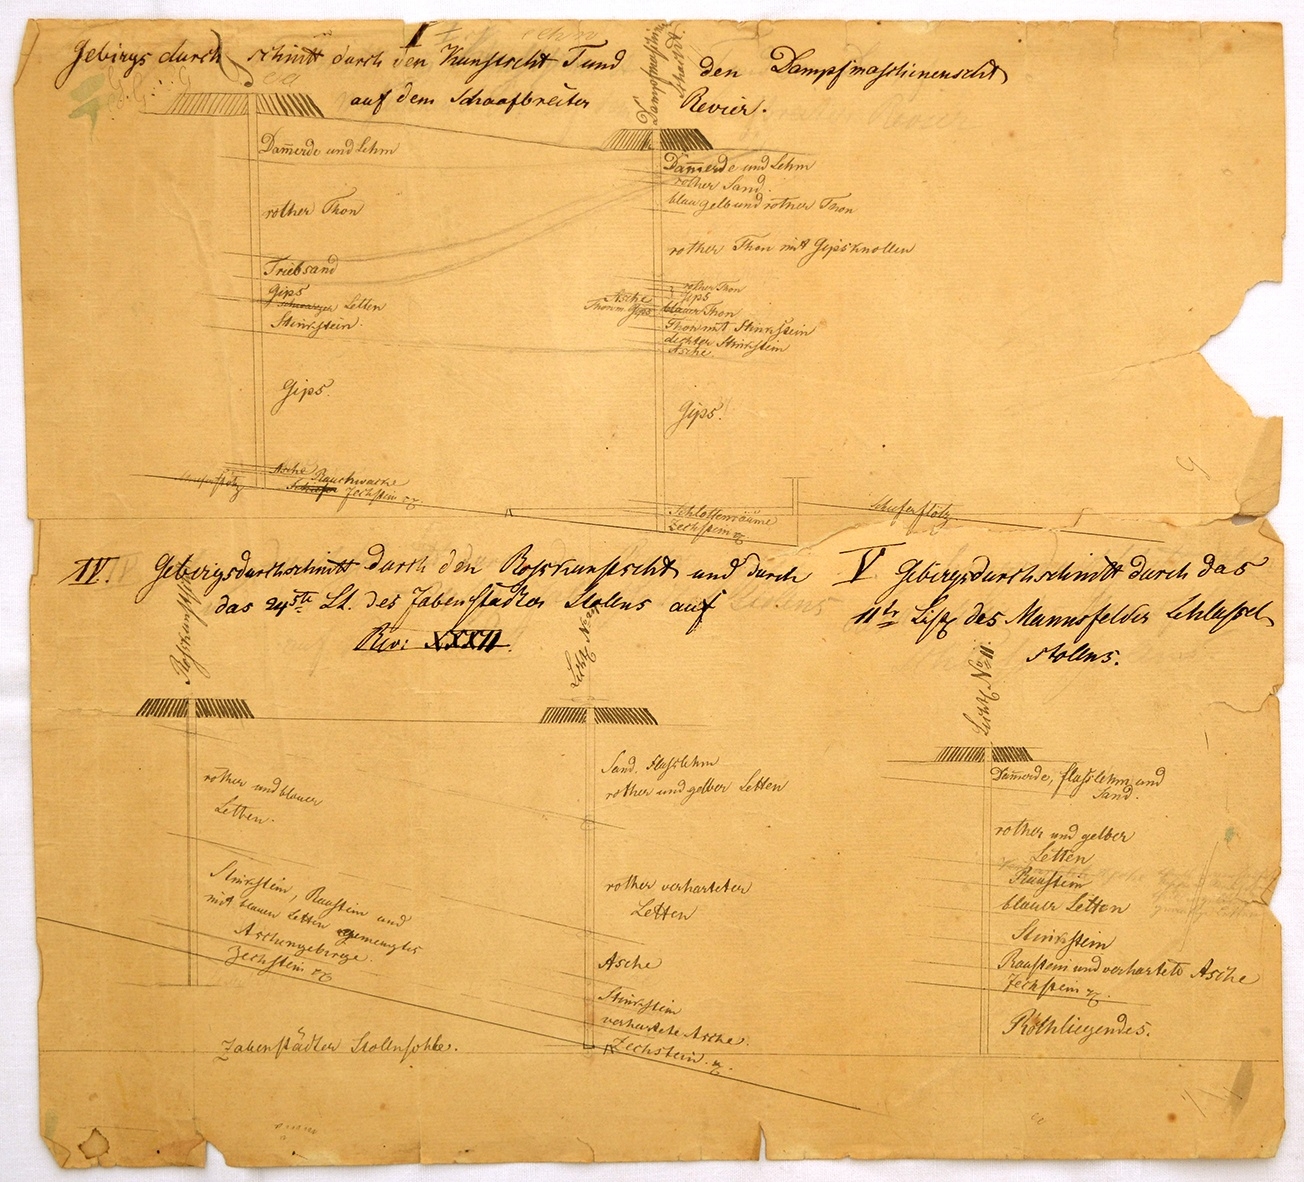 Gebirgsdurchschnitt durch den Kunstscht Tund den Dampfmaschinenscht
auf dem Schaafbreiter Revier.
Dampfmaschinen
Schacht.
Dam̅erde und Lehm
rother Thon
Triebsand
Gips
schwarzer Letten
Stinkstein.
Gips.
Asche
Rauchwacke
Zechstein
Dam̅erde und Lehm
rother Sand.
blau gelb und rother Thon
rother Thon mit Gipsknollen
rother Thon
Gips
Asche
Thon m. Gips
blauer Thon
Thon mit Stinkstein
dichter Stinkstein
Asche.
Gips.
Schlottenräume
Zechstein
Schieferflötz
IV. Gebirgsdurchschnitt durch den Rosskunstscht und durch
das 24ste Lt. des Zabenstädter Stollns auf
Rev: XXXII.
Rosskunstscht
rother und blauer
Letten.
Stinkstein, Raustein und
mit blauen Letten gemengtes
Aschengebirge.
Zechstein
Zabenstädter Stollnsohle.
Sand, flusslehm
rother und gelber Letten
rother verharteter
Letten
Asche
Stinkstein
verhartete Asche.
Zechstein.
V Gebirgsdurchschnitt durch das
11te Licht. des Mannsfelder Schlüssel
stollens.
Licht No 11.
Dam̅erde, flusslehm und
Sand.
rother und gelber
Letten
Raustein
blauer Letten
Stinkstein
Raustein und verhartete Asche
Zechstein
Rothliegendes.